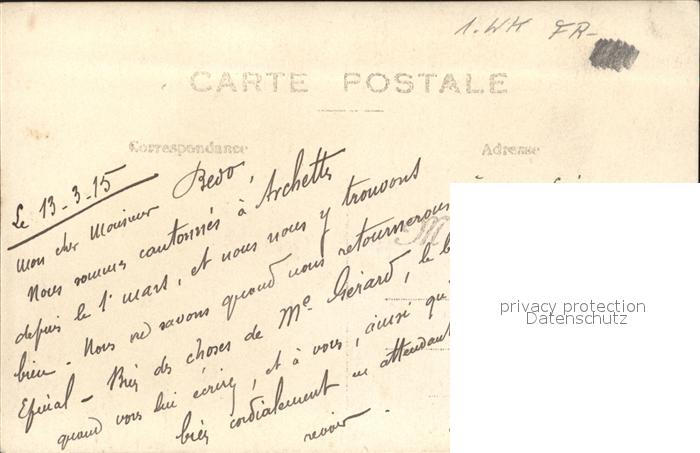 1.WK FR-
CARTE POSTALE
Correspondance
Adresse
Le 13-3-15
Mon cher Monsieur Bedo,
Nous sommes cantonnés à Archettes
depuis le 1er mars, et nous nous y trouvons
bien - Nous ne savons quand nous retournerons
Epinal - Bien des choses de Me Gérard, le b
quand vous lui écrirez, et à vous, ainsi qu'
bien cordialement en attendant
revoir.
privacy protection
Datenschutz